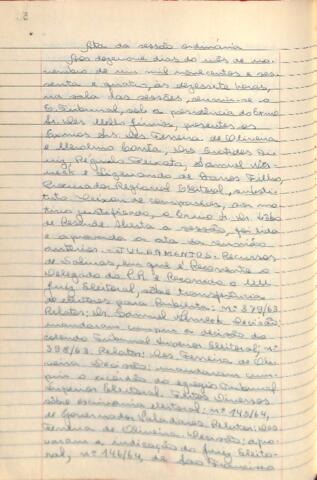 Ata da sessão ordinária
Aos dezenove dias do mês de no-
vembro de um mil novecentos e ses-
senta e quatro, às dezesseis horas,
na sala das sessões, reuniu-se o
E. Tribunal, sob a presidência do Exmo
Sr. Des. Mello Júnior, presentes os
Exmos Srs. Des. Ferreira de Oliveira
e Merolino Corrêa, Drs. Euclides
Reginaldo Samuel
e de Barros Filho,
Procurador Regional Eleitoral, substi-
tuto. Deixou de comparecer, por mo-
tivo justificado, o Exmo Sr. Dr.
e Resende. Aberta a sessão, foi lida
e aprovada a ata da reunião
anterior. = JULGAMENTOS = Recursos
de Salinas, em que é Recorrente o
Delegado do P.R. e Recorrido o MM
Juiz Eleitoral, sobre transferência
de eleitores para Rubelita: nº 379/63
Relator: Dr. Samuel Decisão:
mandaram cumprir a decisão do
colendo Tribunal Superior Eleitoral; nº
398/63. Relator: Des. Ferreira de Oli-
veira. Decisão: mandaram cum-
prir o acórdão do egrégio Tribunal
Superior Eleitoral. Feitos Diversos
sobre escrivania eleitoral: nº 145/64,
de Governador Valadares. Relator: Des.
Ferreira de Oliveira. Decisão: apro-
varam a indicação do Juiz Eleito-
ral; nº 146/64, de São Francisco